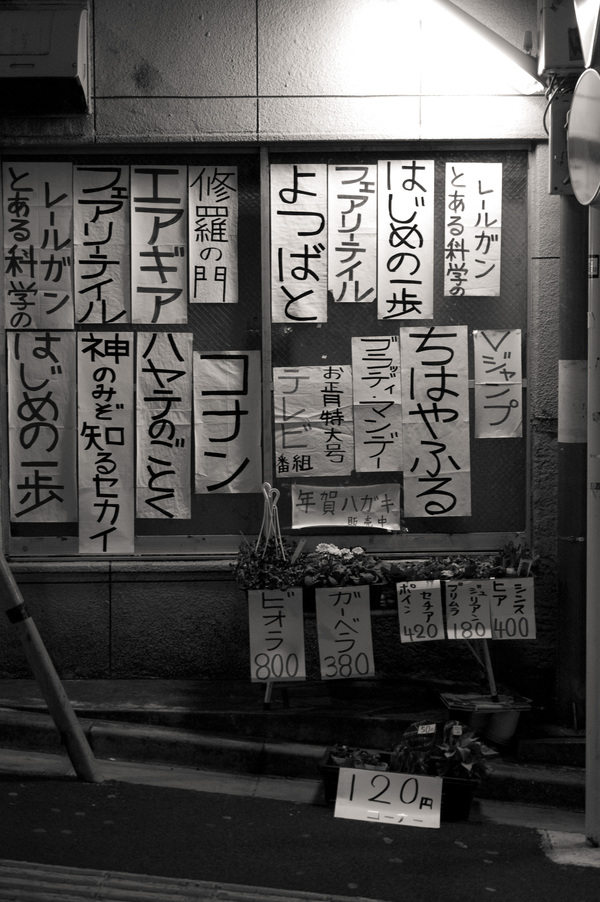 とある科学の
レールガン
フェアリーテイル
エアギア
修羅の門
よつばと
フェアリーテイル
はじめの一歩
とある科学の
レールガン
はじめの一歩
神のみぞ知るセカイ
ハヤテのごとく
コナン
テレビ番組
お正月特大号
ブラッディ・マンデー
ちはやふる
Vジャンプ
年賀ハガキ
販売中
ビオラ
800
ガーベラ
380
ポイン
セチア
420
プリムラ
ジュリアン
180
ヒア
シンス
400
120円
コーナー